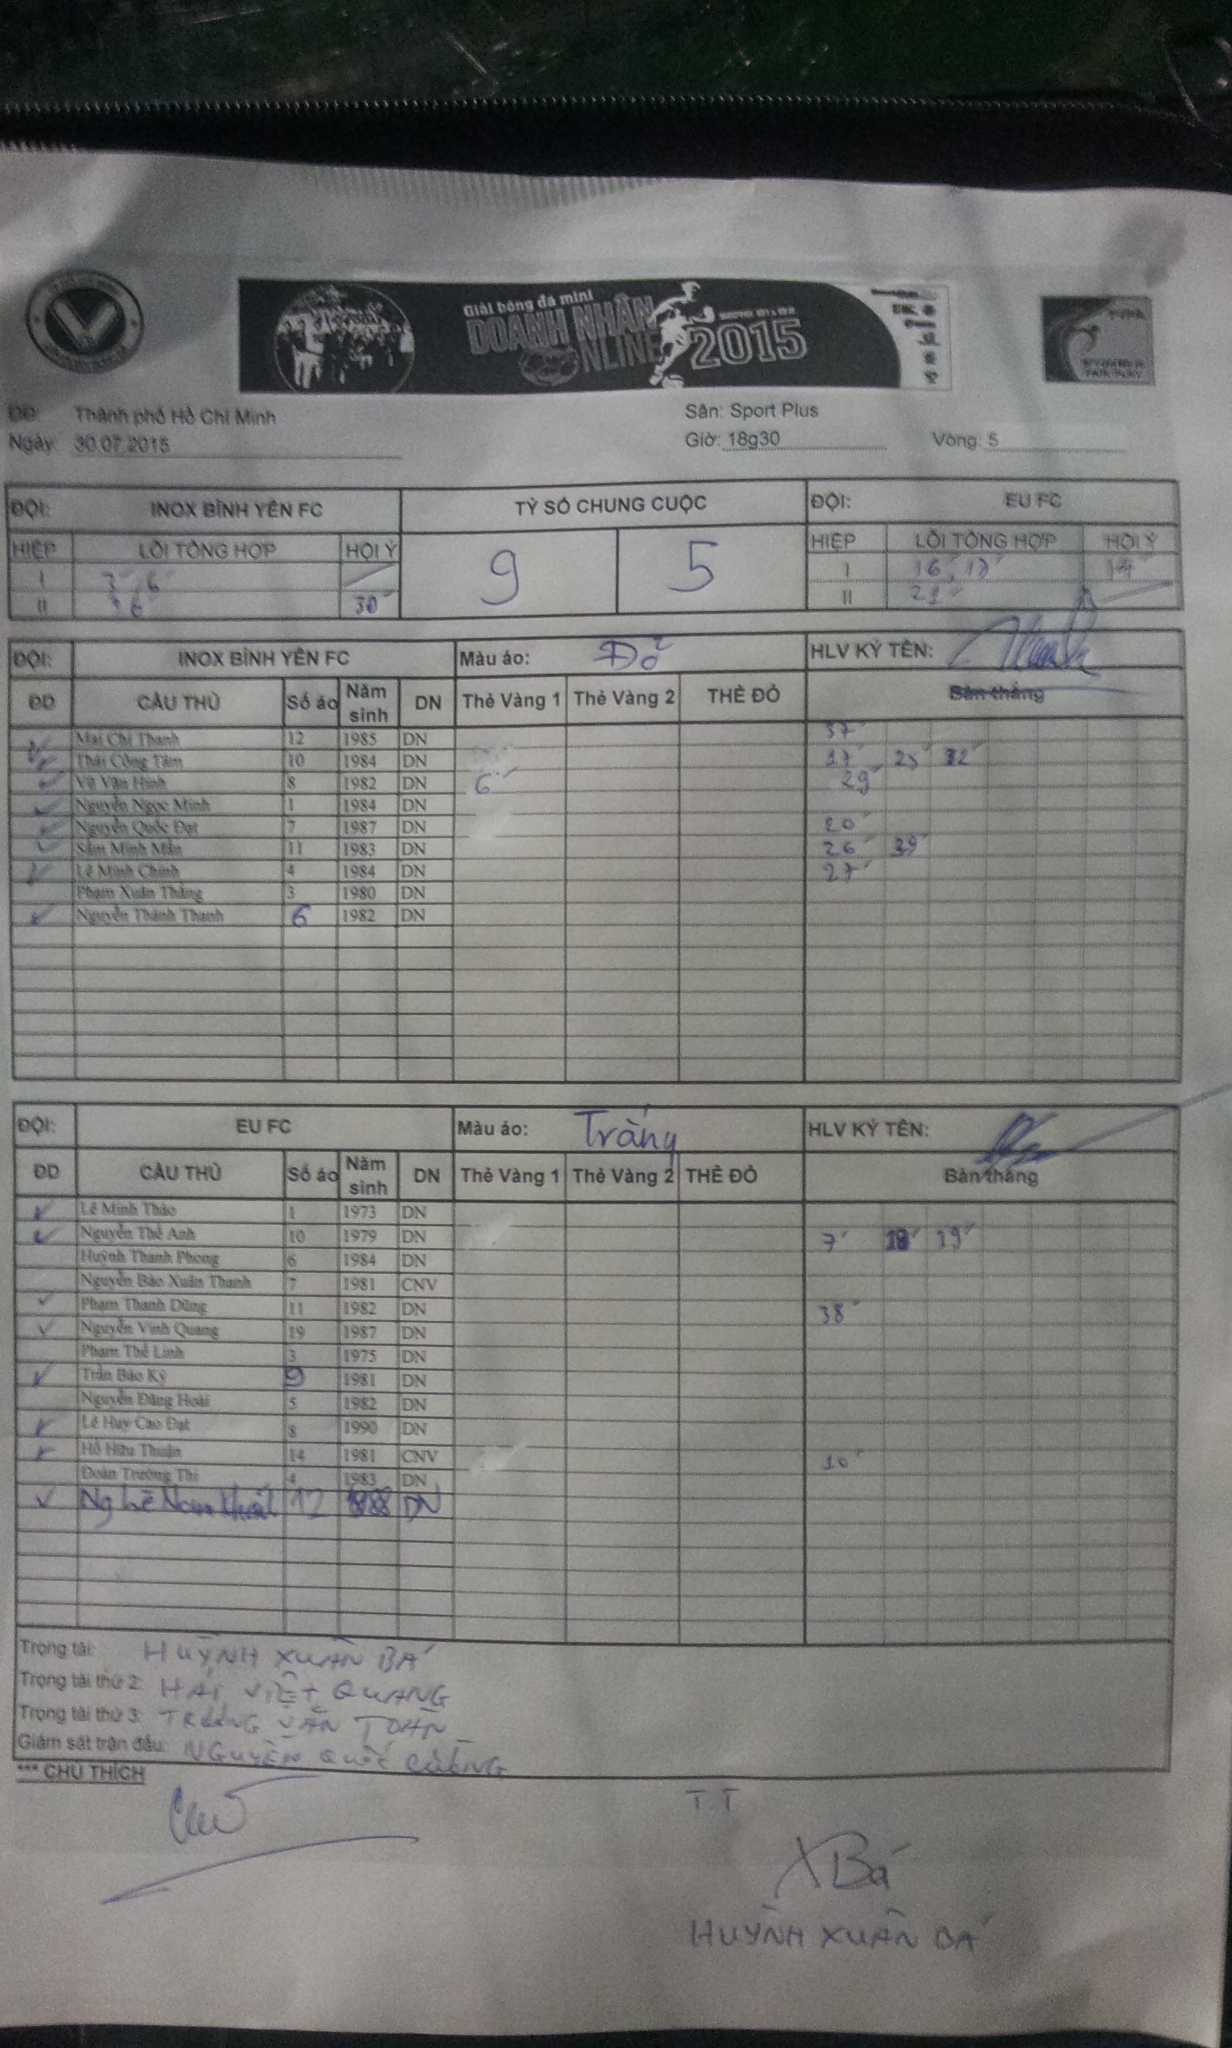 Giải bóng đá mini
DOANH NHÂN
ONLINE 2015
ĐĐ: Thành phố Hồ Chí Minh Sân: Sport Plus
Ngày: 30.07.2015 Giờ: 18g30 Vòng: 5
ĐỘI: INOX BÌNH YÊN FC TỶ SỐ CHUNG CUỘC ĐỘI: EU FC
HIỆP LỖI TỔNG HỢP HỘI Ý 9 5 HIỆP LỖI TỔNG HỢP HỘI Ý
I 3' 6' I 16' 17'
II 6' 30' II 21'
ĐỘI: INOX BÌNH YÊN FC Màu áo: Đỏ HLV KÝ TÊN:
ĐD CẦU THỦ Số áo Năm sinh DN Thẻ Vàng 1 Thẻ Vàng 2 THẺ ĐỎ Bàn thắng
Mai Chí Thanh 12 1985 DN 37'
Thái Công Tâm 10 1984 DN 17' 25' 32'
Vũ Văn Hinh 8 1982 DN 6' 29'
Nguyễn Ngọc Minh 1 1984 DN
Nguyễn Quốc Đạt 7 1987 DN 20'
Sầm Minh Mẫn 11 1983 DN 26' 39'
Lê Minh Chính 4 1984 DN 27'
Phạm Xuân Thắng 3 1980 DN
Nguyễn Thành Thanh 6 1982 DN
ĐỘI: EU FC Màu áo: Trắng HLV KÝ TÊN:
ĐD CẦU THỦ Số áo Năm sinh DN Thẻ Vàng 1 Thẻ Vàng 2 THẺ ĐỎ Bàn thắng
Lê Minh Thảo 1 1973 DN
Nguyễn Thế Anh 10 1979 DN 7' 18' 19'
Huỳnh Thanh Phong 6 1984 DN
Nguyễn Bảo Xuân Thanh 7 1981 CNV
Phạm Thanh Dũng 11 1982 DN 38'
Nguyễn Vinh Quang 19 1987 DN
Phạm Thế Linh 3 1975 DN
Trần Bảo Kỳ 9 1981 DN
Nguyễn Đăng Hoài 5 1982 DN
Lê Huy Cao Đạt 8 1990 DN
Hồ Hữu Thuận 14 1981 CNV 10'
Đoàn Trường Thi 4 1983 DN
Nghê Nam 12 DN
Trọng tài: HUỲNH XUÂN BÁ
Trọng tài thứ 2: HÀ VIỆT QUANG
Trọng tài thứ 3: TRƯƠNG VĂN TOÀN
Giám sát trận đấu: NGUYỄN QUỐC CƯỜNG
*** CHÚ THÍCH
TT
XBá
HUỲNH XUÂN BÁ